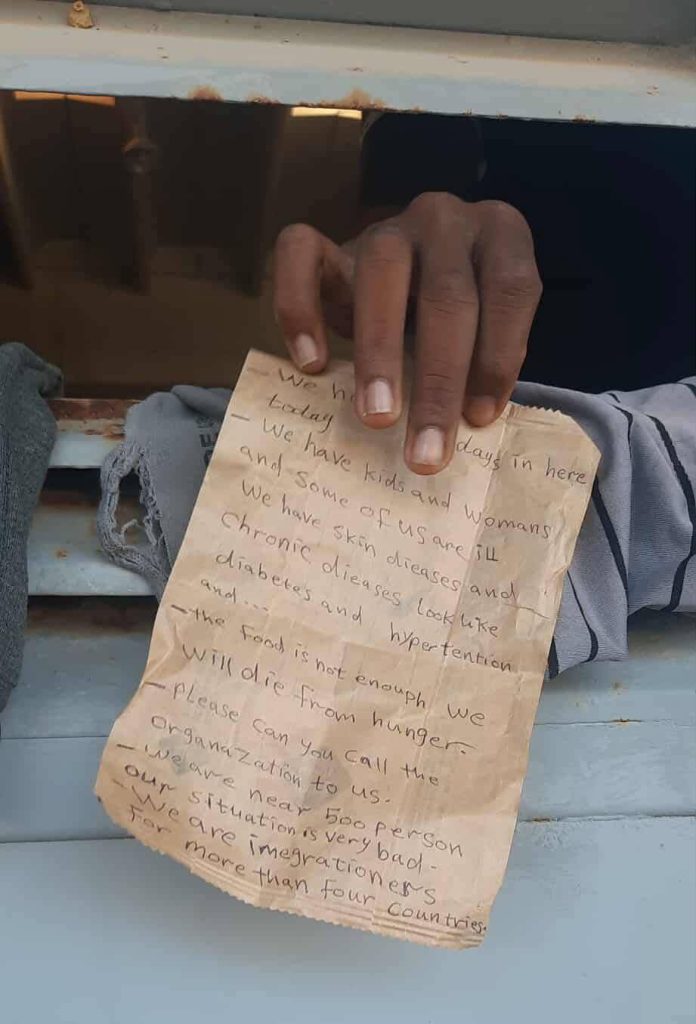 - We ha
today days in here
- We have kids and womans
and some of us are ill
We have skin dieases and
chronic dieases look like
diabetes and hypertention
and...
- the food is not enough we
will die from hunger.
- please can you call the
organazation to us.
- we are near 500 person
our situation is very bad.
- We are imegrationers
for more than four countries.